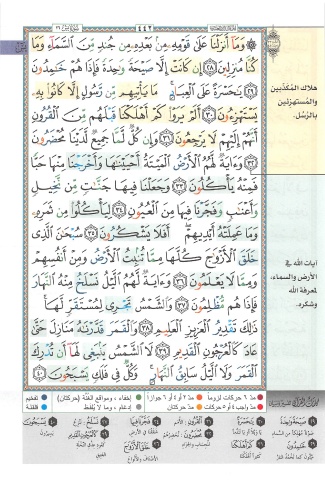 سورة يس ٣٦
٤٤٢
وَمَا أَنزَلْنَا عَلَىٰ قَوْمِهِ مِن بَعْدِهِ مِن جُندٍ مِّنَ السَّمَاءِ وَمَا
كُنَّا مُنزِلِينَ ﴿٢٨﴾ إِن كَانَتْ إِلَّا صَيْحَةً وَاحِدَةً فَإِذَا هُمْ خَامِدُونَ
﴿٢٩﴾ يَا حَسْرَةً عَلَى الْعِبَادِ مَا يَأْتِيهِم مِّن رَّسُولٍ إِلَّا كَانُوا بِهِ
يَسْتَهْزِءُونَ ﴿٣٠﴾ أَلَمْ يَرَوْا كَمْ أَهْلَكْنَا قَبْلَهُم مِّنَ الْقُرُونِ
أَنَّهُمْ إِلَيْهِمْ لَا يَرْجِعُونَ ﴿٣١﴾ وَإِن كُلٌّ لَّمَّا جَمِيعٌ لَّدَيْنَا مُحْضَرُونَ
﴿٣٢﴾ وَآيَةٌ لَّهُمُ الْأَرْضُ الْمَيْتَةُ أَحْيَيْنَاهَا وَأَخْرَجْنَا مِنْهَا حَبًّا
فَمِنْهُ يَأْكُلُونَ ﴿٣٣﴾ وَجَعَلْنَا فِيهَا جَنَّاتٍ مِّن نَّخِيلٍ
وَأَعْنَابٍ وَفَجَّرْنَا فِيهَا مِنَ الْعُيُونِ ﴿٣٤﴾ لِيَأْكُلُوا مِن ثَمَرِهِ
وَمَا عَمِلَتْهُ أَيْدِيهِمْ أَفَلَا يَشْكُرُونَ ﴿٣٥﴾ سُبْحَانَ الَّذِي
خَلَقَ الْأَزْوَاجَ كُلَّهَا مِمَّا تُنبِتُ الْأَرْضُ وَمِنْ أَنفُسِهِمْ
وَمِمَّا لَا يَعْلَمُونَ ﴿٣٦﴾ وَآيَةٌ لَّهُمُ اللَّيْلُ نَسْلَخُ مِنْهُ النَّهَارَ
فَإِذَا هُم مُّظْلِمُونَ ﴿٣٧﴾ وَالشَّمْسُ تَجْرِي لِمُسْتَقَرٍّ لَّهَا
ذَٰلِكَ تَقْدِيرُ الْعَزِيزِ الْعَلِيمِ ﴿٣٨﴾ وَالْقَمَرَ قَدَّرْنَاهُ مَنَازِلَ حَتَّىٰ
عَادَ كَالْعُرْجُونِ الْقَدِيمِ ﴿٣٩﴾ لَا الشَّمْسُ يَنبَغِي لَهَا أَن تُدْرِكَ
الْقَمَرَ وَلَا اللَّيْلُ سَابِقُ النَّهَارِ وَكُلٌّ فِي فَلَكٍ يَسْبَحُونَ ﴿٤٠﴾
هلاك المكذّبين
والمستهزئين
بالرّسل.
آيات الله في
الأرض والسماء،
لمعرفة الله
وشكره.
مدّ ٦ حركات لزوماً مدّ ٢ أو ٤ أو ٦ جوازاً إخفاء، ومواقع الغنّة (حركتان) تفخيم
مدّ واجب ٤ أو ٥ حركات مدّ حركتان إدغام، وما لا يُلفظ قلقلة